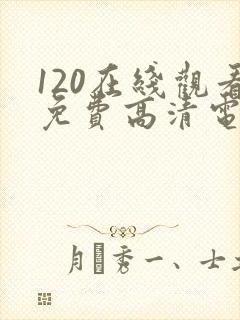 120在綫觀看
免費高清電
月秀一、士